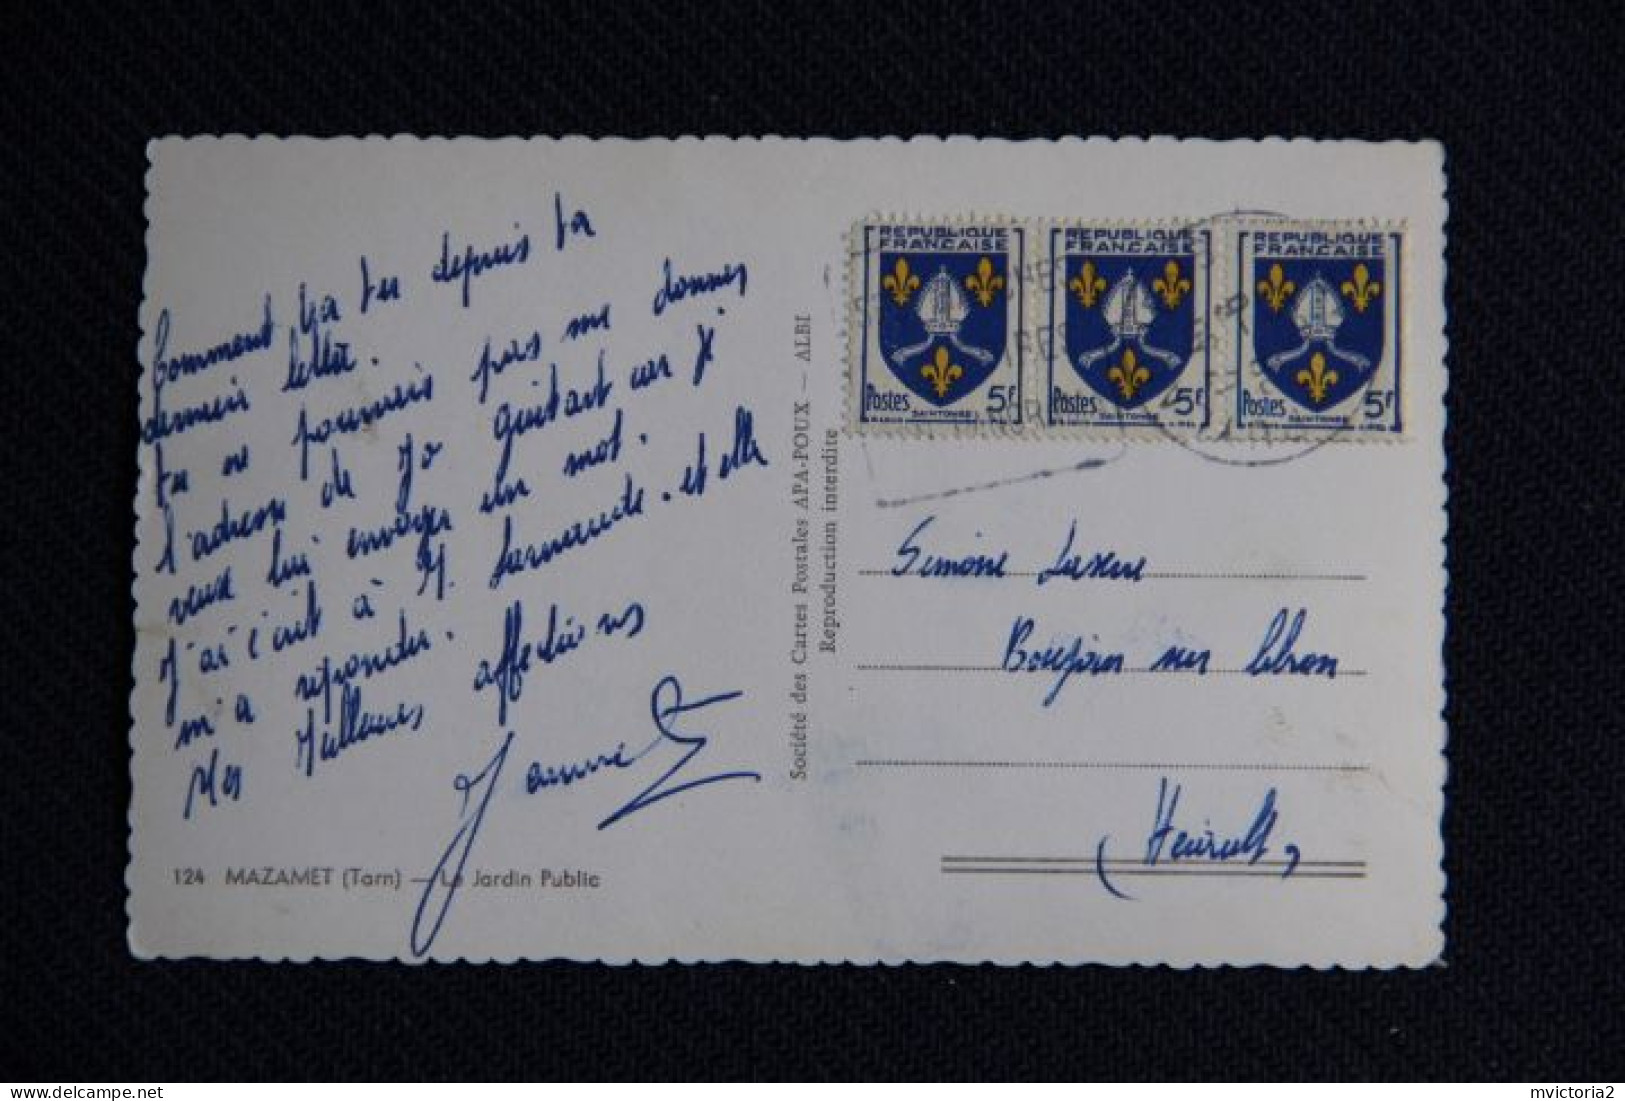 Comment va tu depuis ta
derniere lettre.
tu ne pourrais pas me donner
l'adresse de Jo Guitart car je
veux lui envoyer un mot.
J'ai écrit à M. et elle
m'a répondu.
Mes Meilleures affections
Jeanne
124 MAZAMET (Tarn) — Le Jardin Public
Société des Cartes Postales APA-POUX — ALBI
Reproduction interdite
REPUBLIQUE FRANÇAISE
Postes SAINTONGE 5F
REPUBLIQUE FRANÇAISE
Postes SAINTONGE 5F
REPUBLIQUE FRANÇAISE
Postes SAINTONGE 5F
Simone
Boujan sur Libron
(Hérault)
mvictoria2